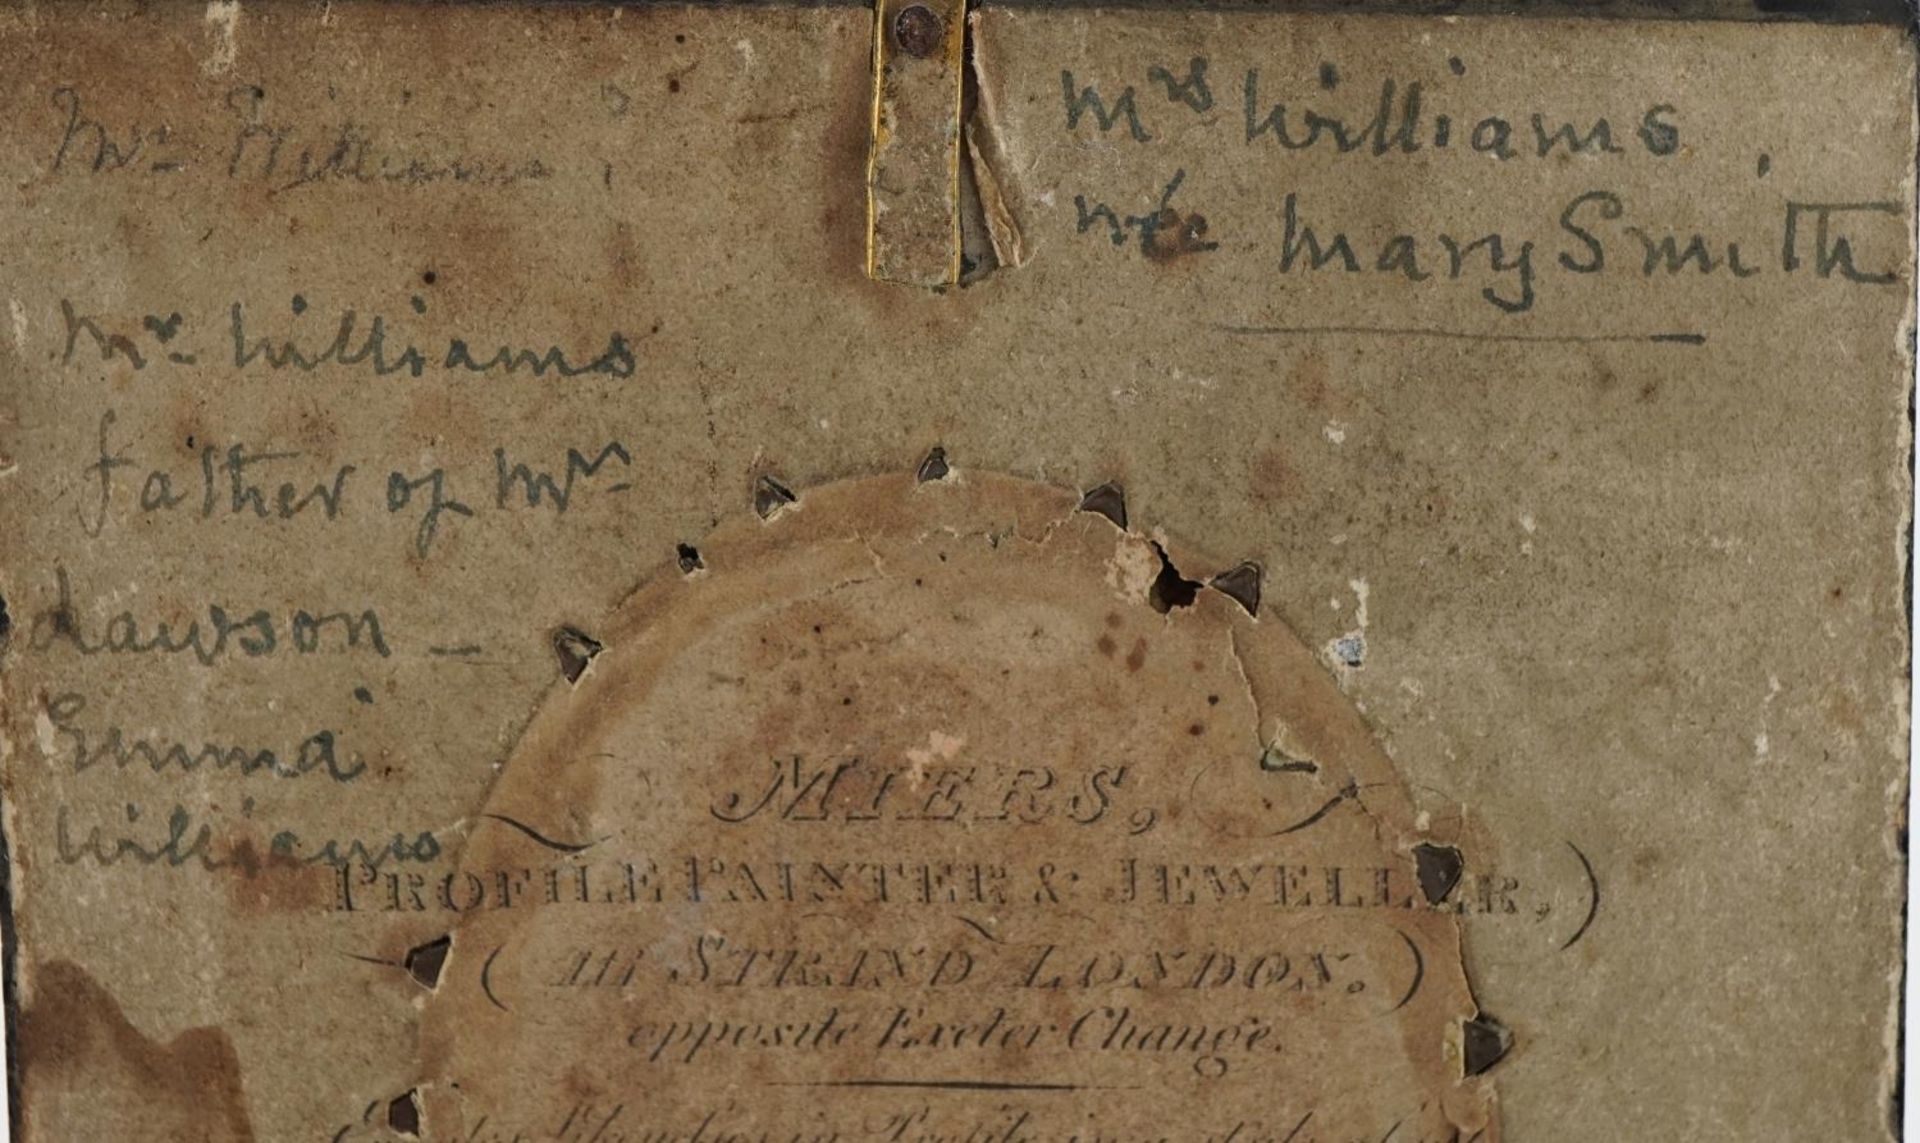 Mrs Williams?
Mrs Williams,
née Mary Smith
Mr Williams
father of Mrs
Lawson —
Emma
Williams
MIERS,
PROFILE PAINTER & JEWELLER,
(111 STRAND LONDON.)
opposite Exeter Change.